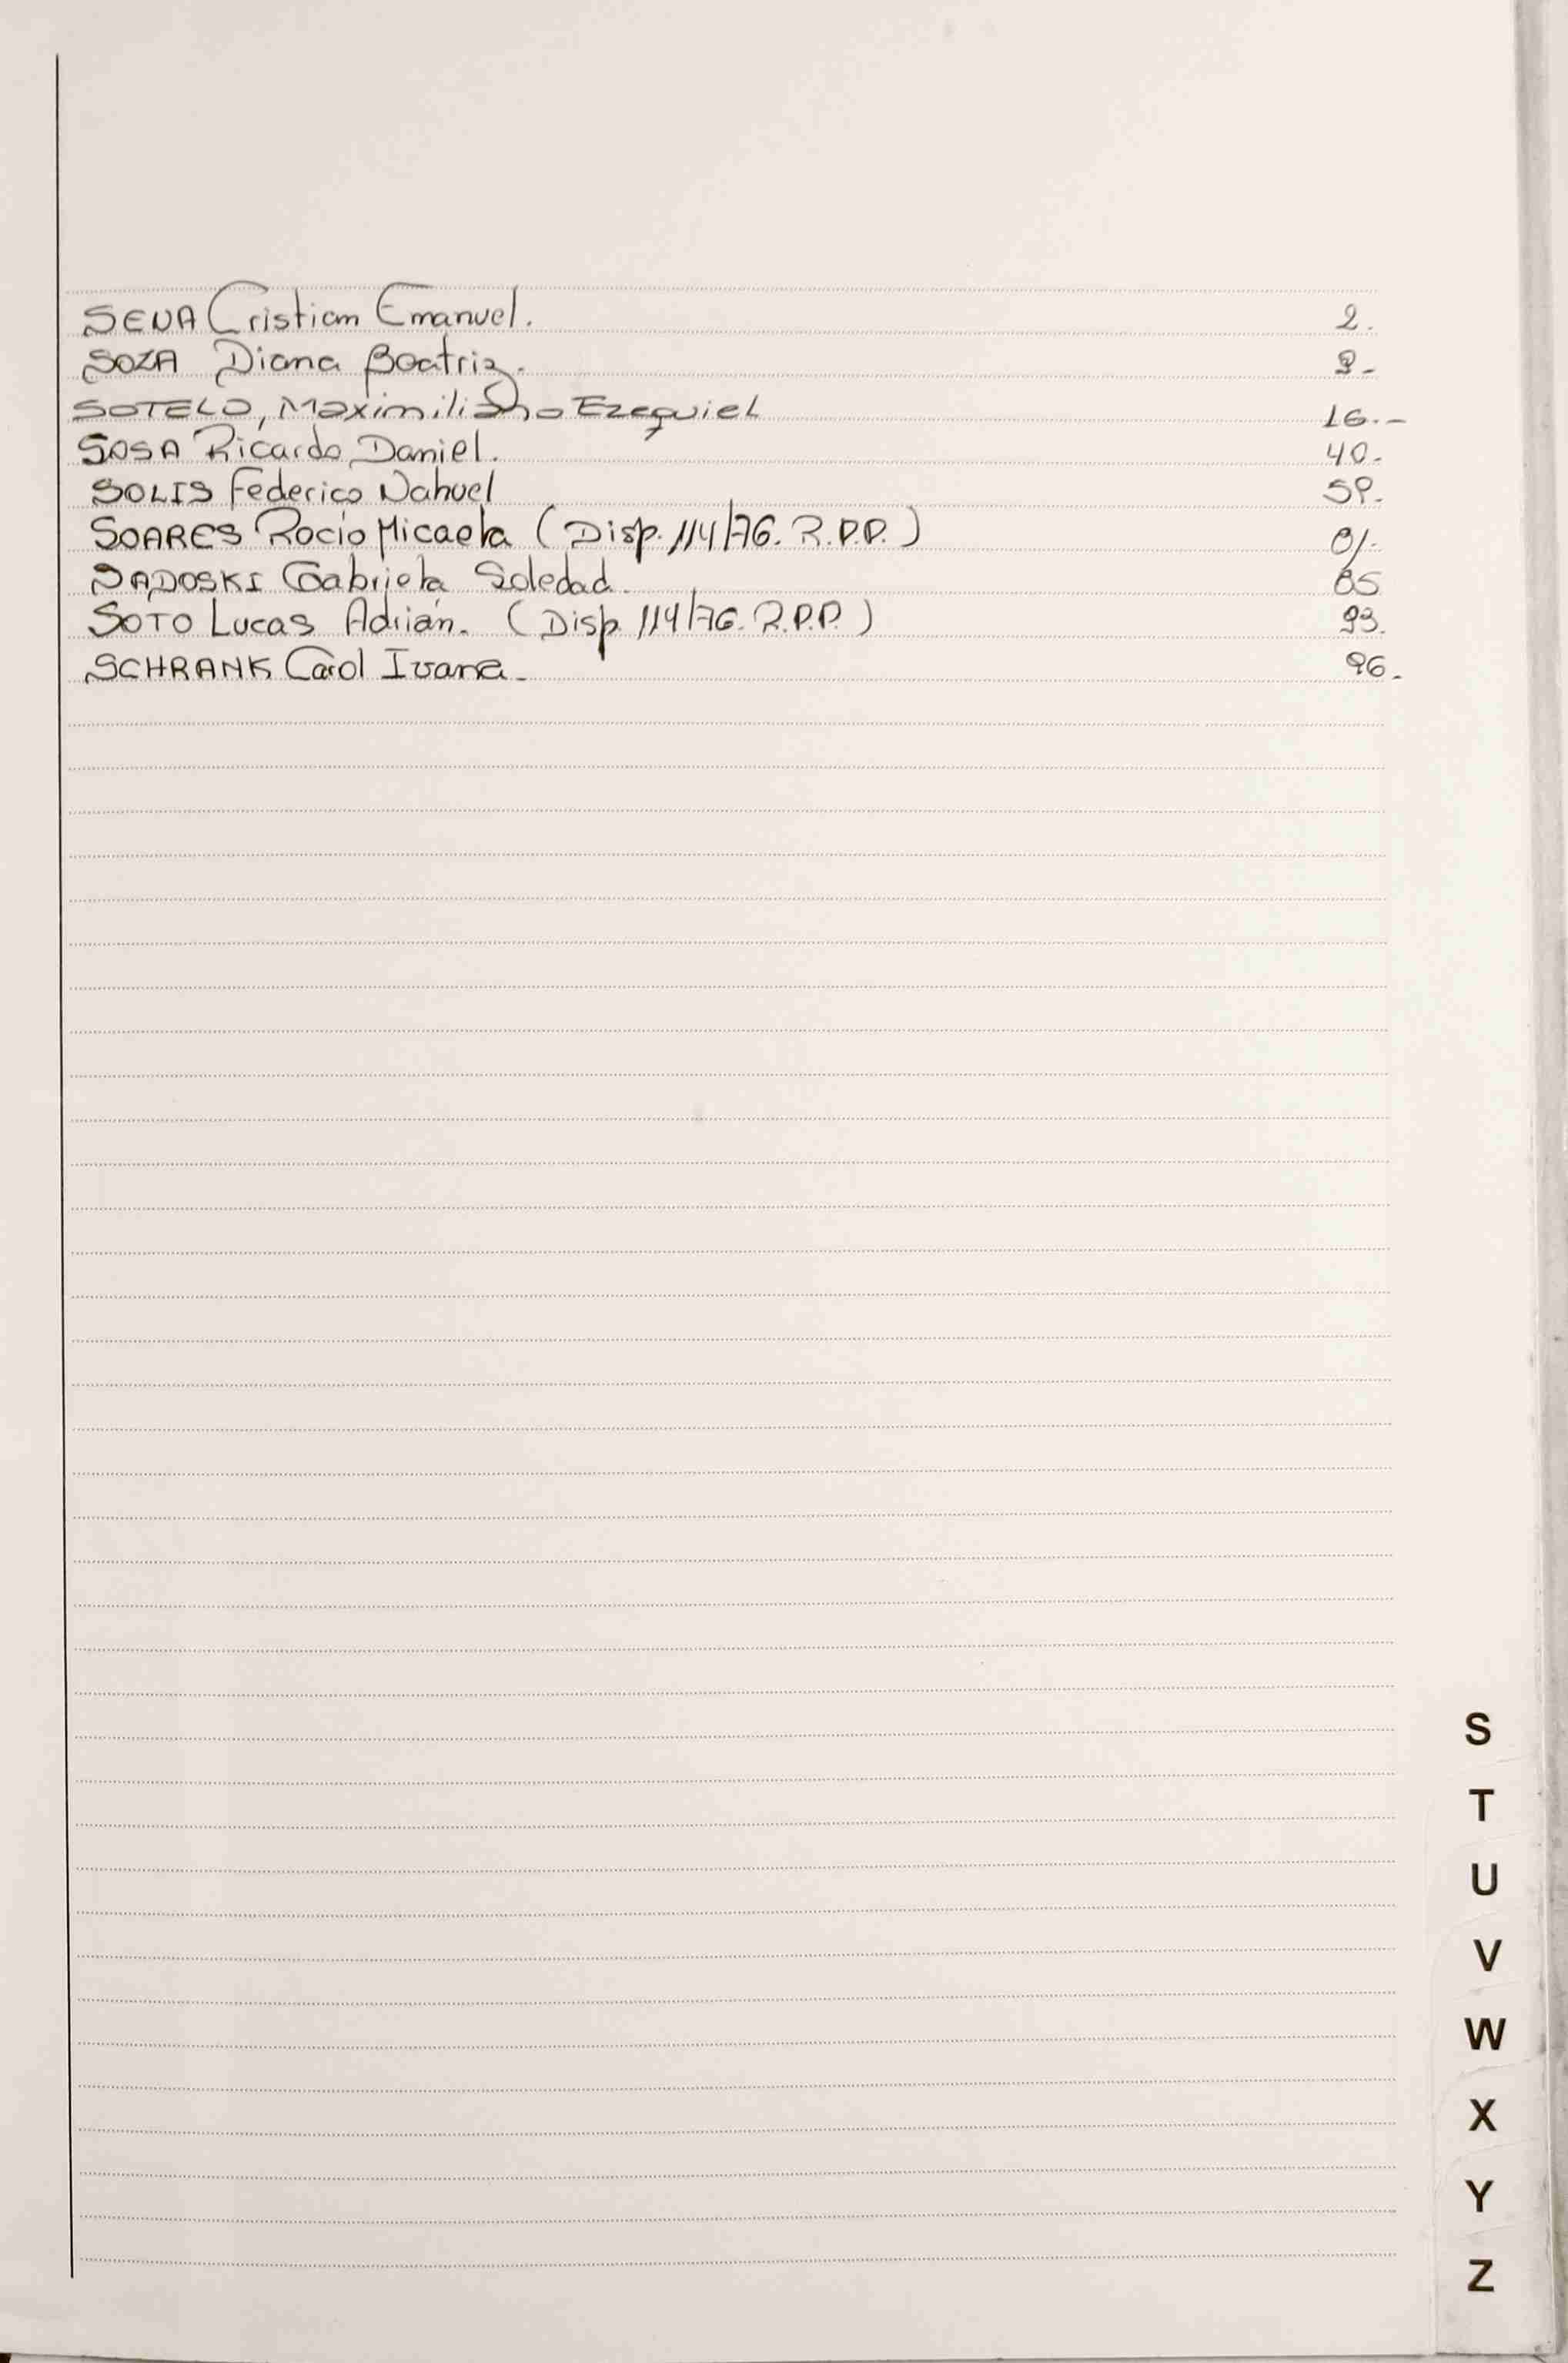 SENA Cristian Emanuel. 2.
SOZA Diana Beatriz. 9.-
SOTELO, Maximiliano Ezequiel 16.-
SOSA Ricardo Daniel. 40.-
SOLIS Federico Nahuel
SOARES Rocío Micaela (Disp. 114/76. R.P.P.)
SADOSKI Gabriela Soledad. 85
SOTO Lucas Adrián. (Disp. 114/76. R.P.P.) 93.
SCHRANK Carol Ivana.- 96.
S
T
U
V
W
X
Y
Z